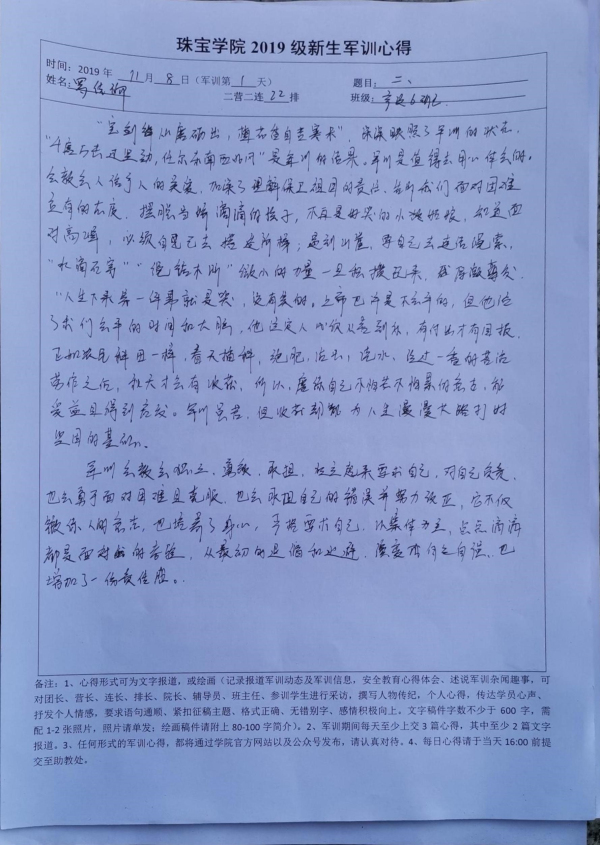 珠宝学院 2019 级新生军训心得
时间：2019 年 11 月 8 日（军训第 1 天）
题目：二、
姓名：
二营二连 22 排
班级：
"宝剑锋从磨砺出，梅花香自苦寒来"，深深映照了军训的状态，
"千磨万击还坚劲，任尔东南西北风"是军训的结果。军训是值得去用心体会的，
会教会人给予人的，加深了理解保卫祖国的责任，告诉我们面对困难
应有的态度，摆脱当娇滴滴的孩子，不再是好哭的小姑娘，如若面
对高峰，必须自己去，是到山崖，要自己去连活绳索，
"水滴石穿""绳锯木断"微小的力量一旦
"人生下来第一件事就是哭，没有笑的。上帝也许是不公平的，但他给
了我们公平的时间和大脑，他注定人，有付出才有回报，
正如农民种田一样，春天播种，施肥，浇水，
劳作之后，秋天才会有收获，所以，磨练自己不怕苦不怕累的意志，能
受益且得到音效。军训虽苦，但收获却能为人生漫漫大路打好
坚固的基础。
军训会教会独立、勇敢、承担，站立起来要求自己，对自己负责，
也会勇于面对困难且克服，也会承担自己的错误并努力改正，它不仅
锻炼人的意志，也培养了身心，严格要求自己，以集体为主，点点滴滴
都是面对的考验，从最初的退缩和逃避，演变为自信，也
增加了一份责任感。
备注：1、心得形式可为文字报道，或绘画（记录报道军训动态及军训信息，安全教育心得体会、述说军训杂闻趣事，可
对团长、营长、连长、排长、院长、辅导员、班主任、参训学生进行采访，撰写人物传纪，个人心得，传达学员心声、
抒发个人情感，要求语句通顺、紧扣征稿主题、格式正确、无错别字、感情积极向上。文字稿件字数不少于 600 字，需
配 1-2 张照片，照片请单发；绘画稿件请附上 80-100 字简介）。2、军训期间每天至少上交 3 篇心得，其中至少 2 篇文字
报道。3、任何形式的军训心得，都将通过学院官方网站以及公众号发布，请认真对待。4、每日心得请于当天 16:00 前提
交至助教处。